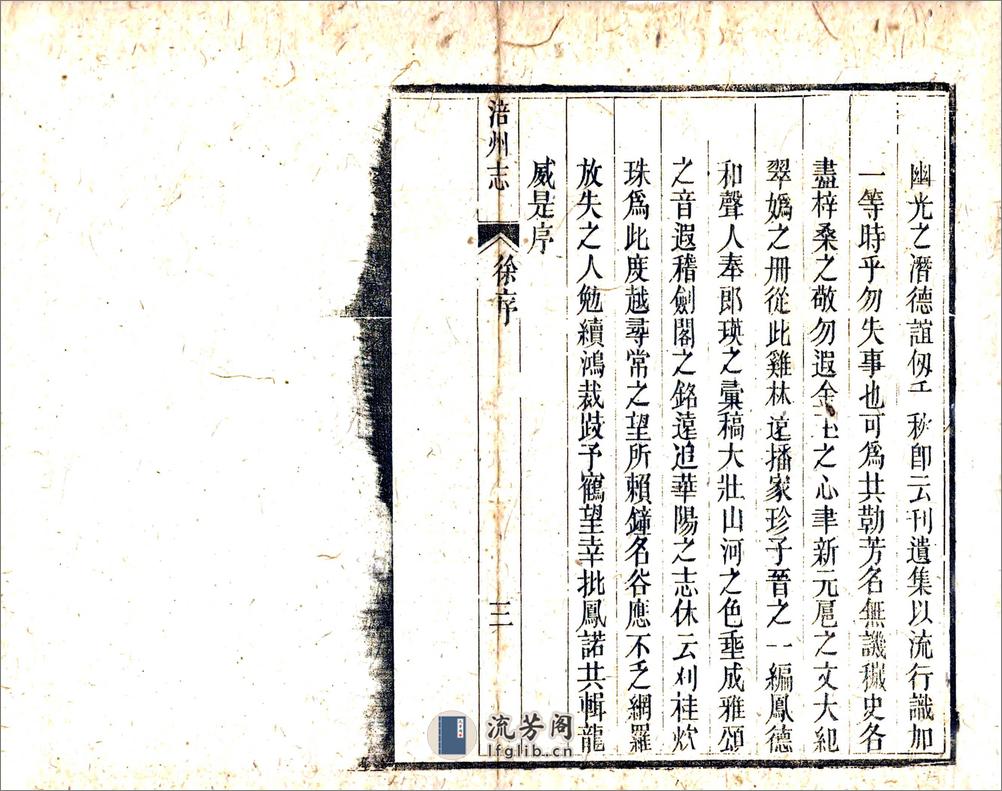 幽光之潛德誼伋 秋卽云刊遺集以流行識加
一等時乎勿失事也可爲共勒芳名無譏穢史各
盡梓桑之敬勿遐金玉之心聿新元扈之文大紀
翠嬀之冊從此雞林遠播家珍子晉之一編鳳德
和聲人奉郎瑛之彙稿大壯山河之色垂成雅頌
之音遐稽劍閣之銘遠追華陽之志休云刈桂炊
珠爲此度越尋常之望所賴鐘名谷應不乏網羅
放失之人勉續鴻裁跂予鶴望幸批鳳諾共輯龍
威是序
涪州志
徐序
三
流芳阁
lfglib.cn